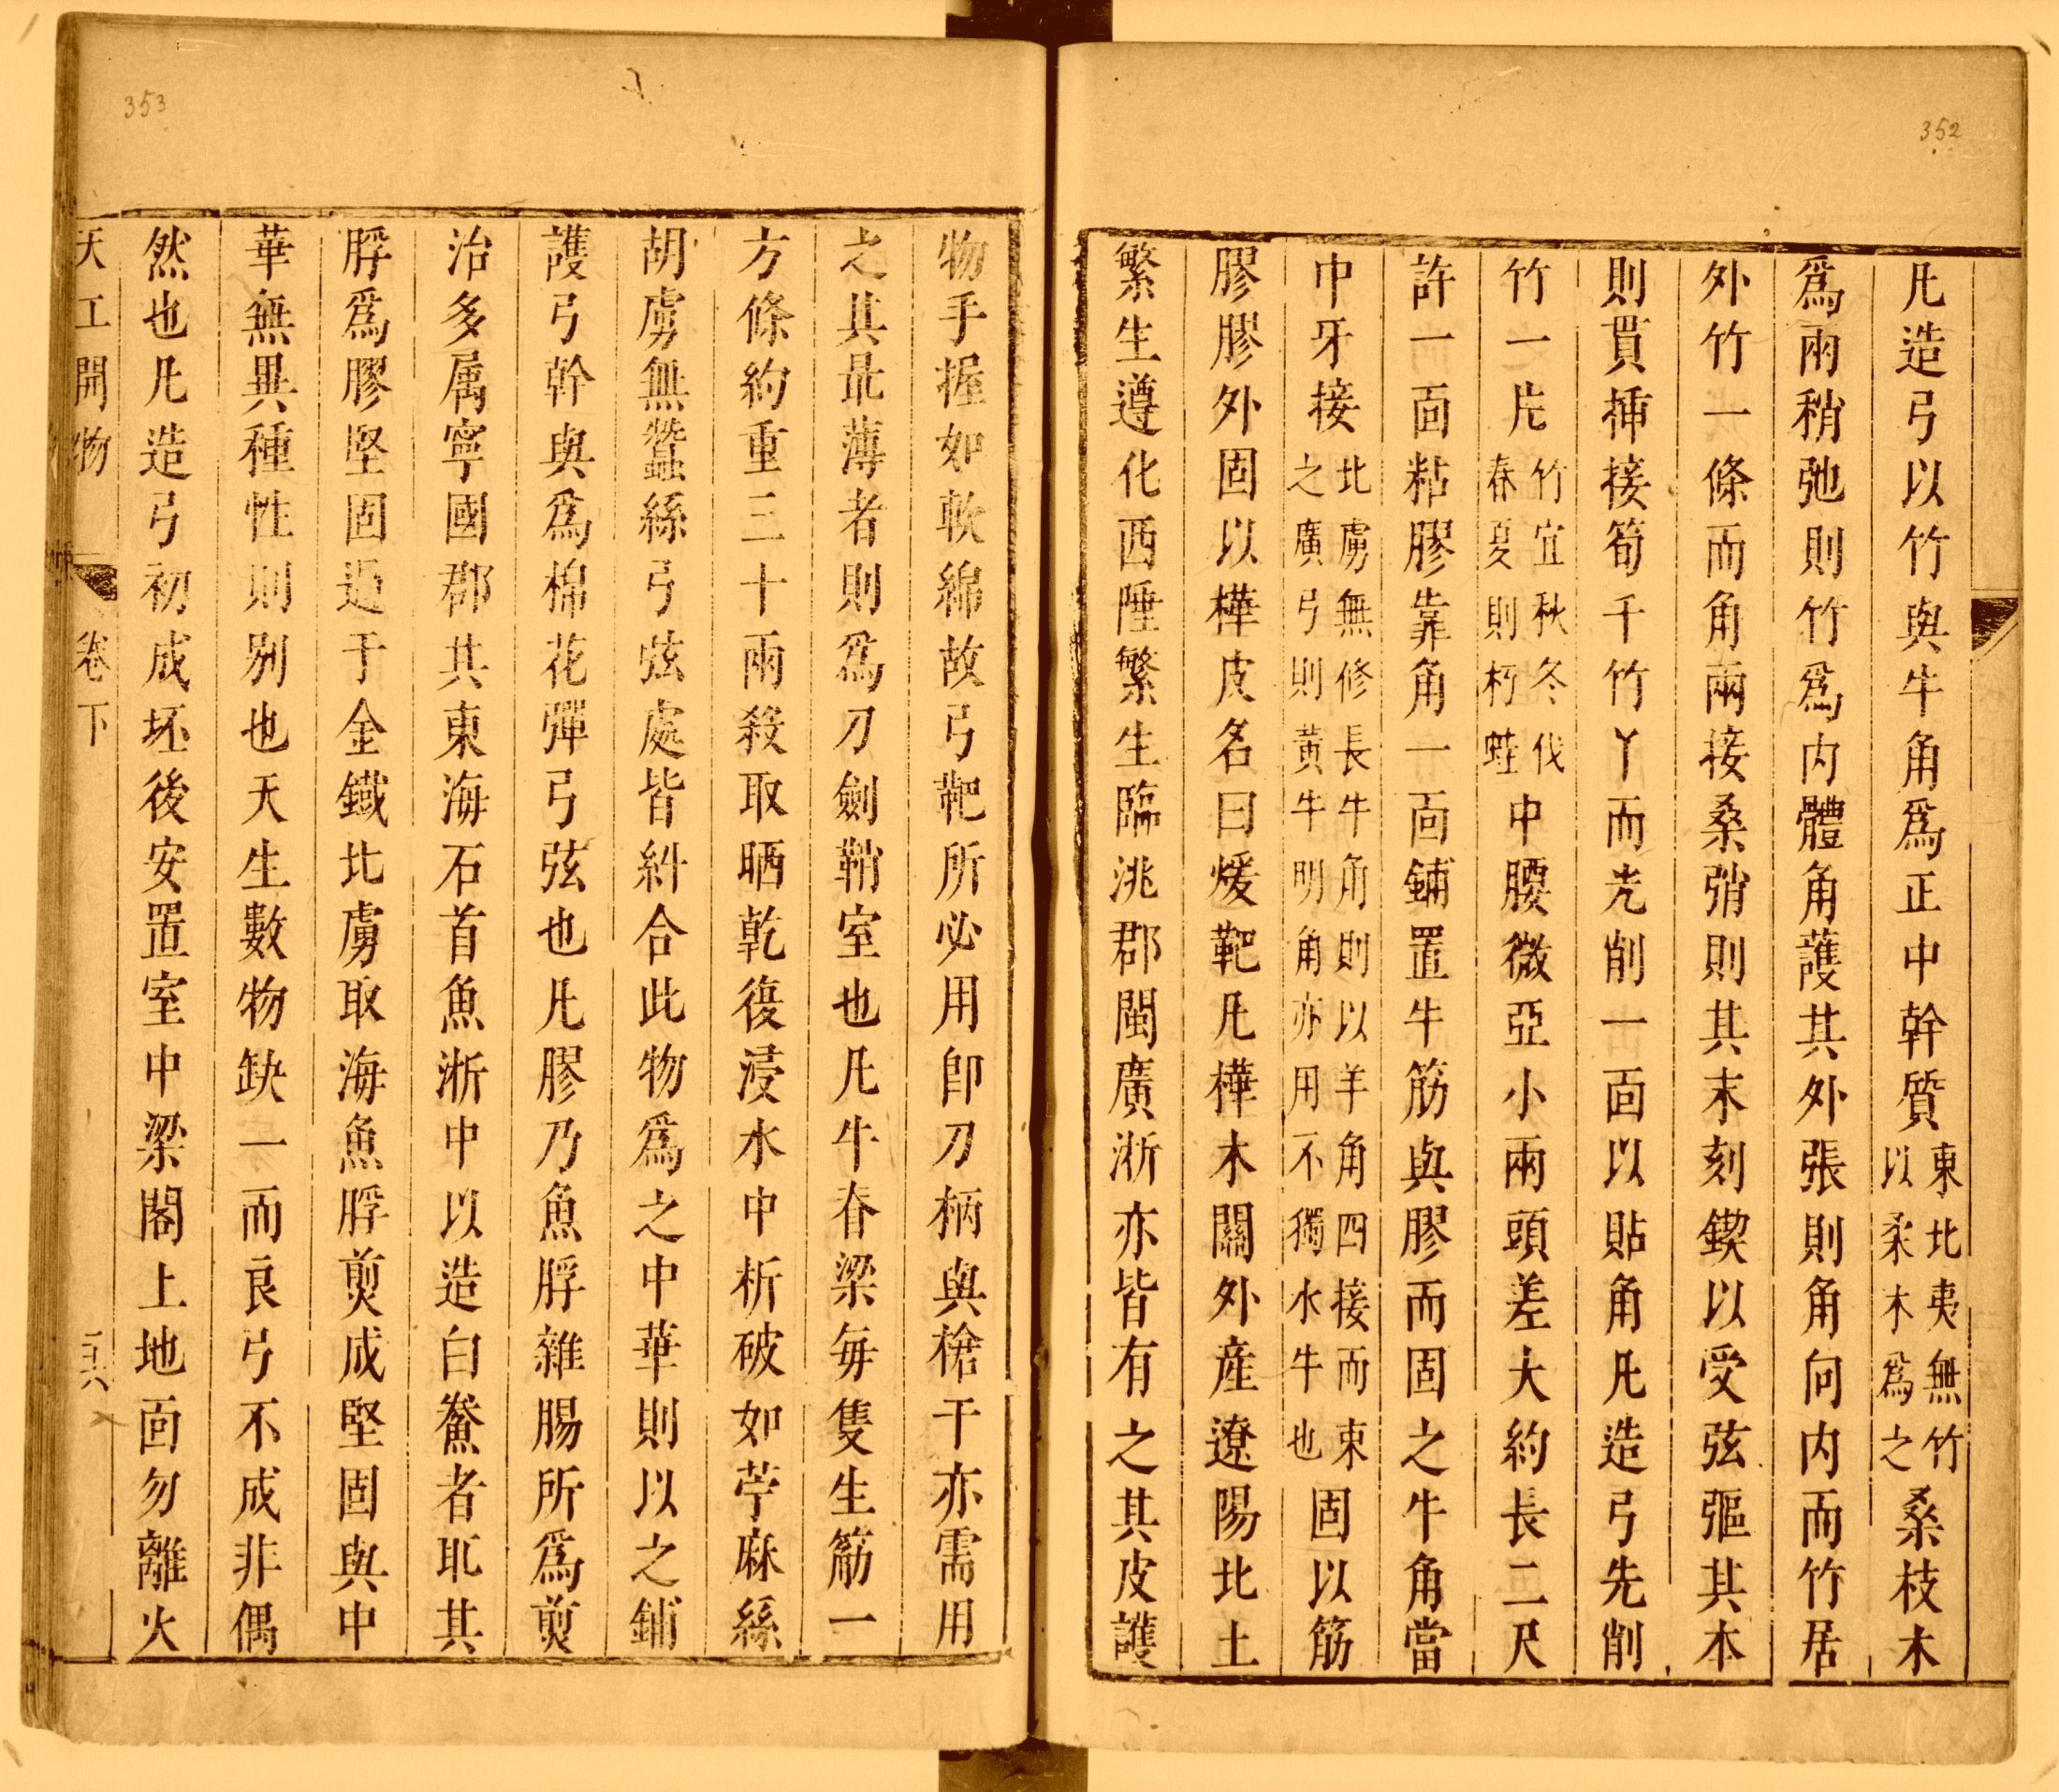 352
凡造弓以竹與牛角爲正中幹質東北夷無竹以柔木爲之桑枝木
爲兩稍弛則竹爲内體角護其外張則角向内而竹居
外竹一條而角兩接桑弰則其末刻鍥以受弦彄其本
則貫揷接筍于竹丫而光削一面以貼角凡造弓先削
竹一片竹宜秋冬伐春夏則朽蛀中腰微亞小兩頭差大約長二尺
許一面粘膠靠角一面鋪置牛筋與膠而固之牛角當
中牙接北虜無修長牛角則以羊角四接而束之廣弓則黃牛明角亦用不獨水牛也固以筋
膠膠外固以樺皮名曰煖靶凡樺木關外産遼陽北土
繁生遵化西陲繁生臨洮郡閩廣浙亦皆有之其皮護
353
物手握如軟綿故弓靶所必用卽刀柄與槍干亦需用
之其最薄者則爲刀劍鞘室也凡牛脊梁每隻生筋一
方條約重三十兩殺取晒乾復浸水中析破如苧麻絲
胡虜無蠶絲弓弦處皆糾合此物爲之中華則以之鋪
護弓幹與爲棉花彈弓弦也凡膠乃魚脬雜腸所爲煎
治多属寧國郡其東海石首魚浙中以造白鯗者取其
脬爲膠堅固過于金鐵北虜取海魚脬煎成堅固與中
華無異種性則别也天生數物缺一而良弓不成非偶
然也凡造弓初成坯後安置室中梁閣上地面勿離火
天工開物 卷下